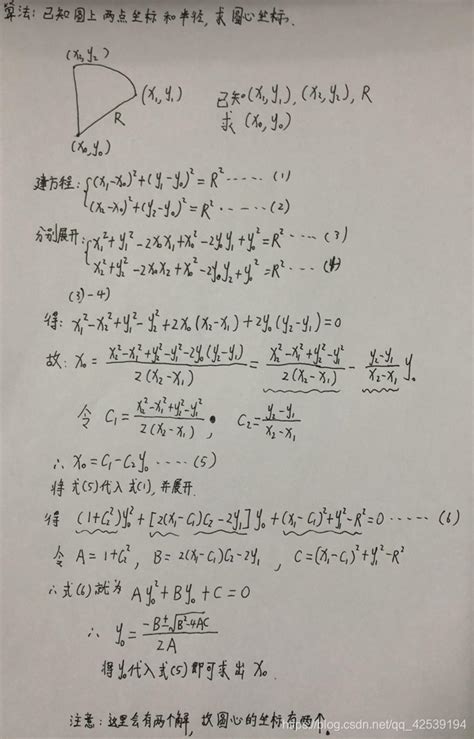 算法:已知圆上两点坐标和半径,求圆心坐标.
(x₂,y₂)
(x₁,y₁)
R
(x₀,y₀)
已知(x₁,y₁),(x₂,y₂),R
求(x₀,y₀)
建方程:{(x₁-x₀)²+(y₁-y₀)²=R²·····(1)
(x₂-x₀)²+(y₂-y₀)²=R²·····(2)
分别展开:{x₁²+y₁²-2x₀x₁+x₀²-2y₀y₁+y₀²=R²····(3)
x₂²+y₂²-2x₀x₂+x₀²-2y₀y₂+y₀²=R²····(4)
(3)-4)
得:x₁²-x₂²+y₁²-y₂²+2x₀(x₂-x₁)+2y₀(y₂-y₁)=0
故:x₀=\frac{x₂²-x₁²+y₂²-y₁²-2y₀(y₂-y₁)}{2(x₂-x₁)}=\frac{x₂²-x₁²+y₂²-y₁²}{2(x₂-x₁)}-\frac{y₂-y₁}{x₂-x₁}y₀
令 C₁=\frac{x₂²-x₁²+y₂²-y₁²}{2(x₂-x₁)}, C₂=\frac{y₂-y₁}{x₂-x₁}
∴ x₀=C₁-C₂y₀·····(5)
将式(5)代入式(1),并展开.
得 (1+C₂²)y₀²+[2(x₁-C₁)C₂-2y₁]y₀+(x₁-C₁)²+y₁²-R²=0·····(6)
令 A=1+C₂², B=2(x₁-C₁)C₂-2y₁, C=(x₁-C₁)²+y₁²-R²
∴式(6)就为 Ay₀²+By₀+C=0
∴ y₀=\frac{-B±√B²-4AC}{2A}
得y₀代入式(5)即可求出x₀.
注意:这里会有两个解,故圆心的坐标有两个.
https://blog.csdn.net/qq_42539194